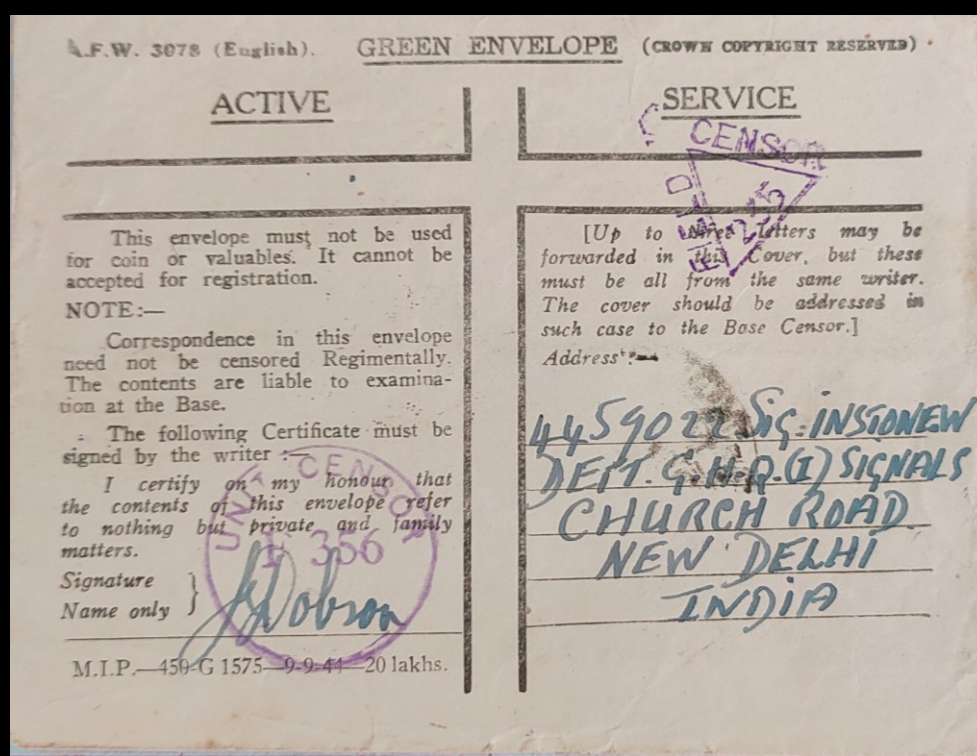 A.F.W. 3078 (English). GREEN ENVELOPE (CROWN COPYRIGHT RESERVED)
ACTIVE SERVICE
This envelope must not be used
for coin or valuables. It cannot be
accepted for registration.
NOTE:—
Correspondence in this envelope
need not be censored Regimentally.
The contents are liable to examina-
tion at the Base.
The following Certificate must be
signed by the writer :—
I certify on my honour that
the contents of this envelope refer
to nothing but private and family
matters.
Signature
Name only
Dobson
UNIT CENSOR
356
M.I.P.—450-G 1575—9-9-44—20 lakhs.
CENSOR
[Up to three letters may be
forwarded in this Cover, but these
must be all from the same writer.
The cover should be addressed in
such case to the Base Censor.]
Address :—
4459022 SIG. INSTONE.W
DETT. G.H.Q.(I) SIGNALS
CHURCH ROAD
NEW DELHI
INDIA